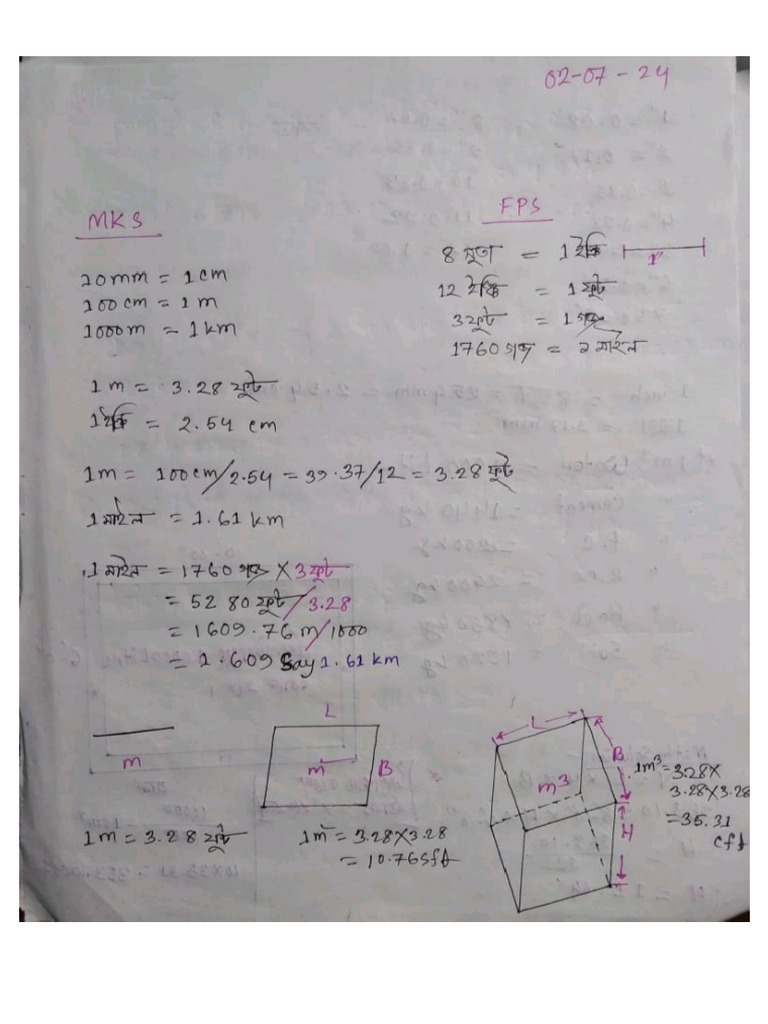 02-07-24
MKS
10mm = 1cm
100cm = 1m
1000m = 1km
FPS
8 সুতা = 1 ইঞ্চি
1"
12 ইঞ্চি = 1 ফুট
3 ফুট = 1 গজ
1760 গজ = ১ মাইল
1m = 3.28 ফুট
1 ইঞ্চি = 2.54 cm
1m = 100cm/2.54 = 39.37/12 = 3.28 ফুট
1 মাইল = 1.61 km
1 মাইল = 1760 গজ × 3 ফুট
= 5280 ফুট/3.28
= 1609.76 m/1000
= 1.609 Say 1.61 km
m
1m = 3.28 ফুট
L
m
B
1m² = 3.28×3.28
= 10.76sft
L
B
m³
H
1m³ = 3.28×
3.28×3.28
= 35.31
cft